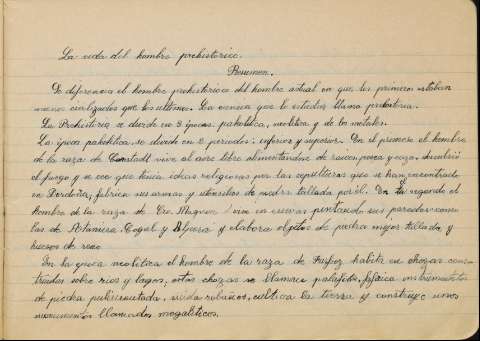 La vida del hombre prehistórico.
Resumen.
Se diferencia el hombre prehistórico del hombre actual en que los primeros estaban
menos civilizados que los ultimos. La ciencia que le estudia llama prehistoria.
La Prehistoria se divide en 3 épocas: paleolítica, neolítica y de los metales.
La época paleolítica se divide en 2 periodos: inferior y superior. En el primero el hombre
de la raza de Canstadt vive al aire libre alimentandose de raices, pesca y caza, descubrió
el fuego y se cree que tenia ideas religiosas por las sepulturas que se han encontrado
en Dordoña, fabrica sus armas y utensilios de piedra tallada por él. En el segundo el
hombre de la raza de Cro-Magnon vive en cuevas pintando sus paredes como
las de Altamira, Cogul y Alpera y elabora objetos de piedra mejor tallada y
huesos de reno
En la época neolítica el hombre de la raza de Furfooz habita en chozas cons-
truidas sobre rios y lagos, estas chozas se llaman palafitos, fabrica instrumentos
de piedra pulimentada, cuida rebaños, cultiva la tierra y construye unos
monumentos llamados megaliticos.